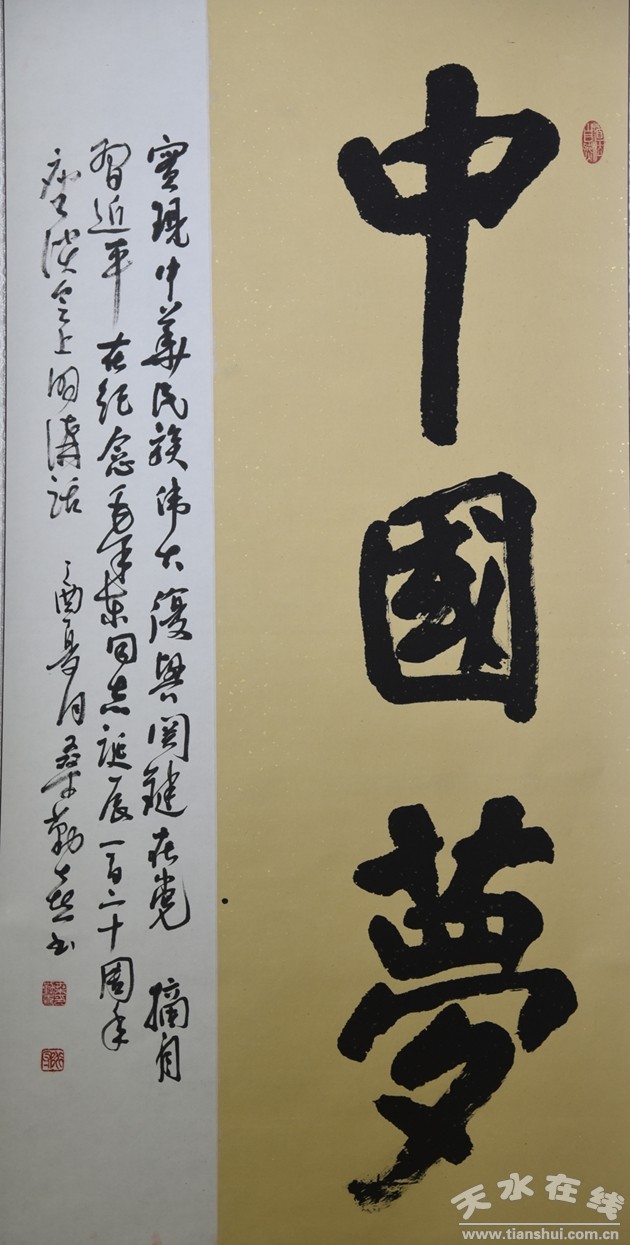 中國夢
實現中華民族伟大復興関鍵在党 摘自
習近平在紀念毛泽東同志诞辰一百二十周年
座談会上的講話 丁酉夏月 勤 书
天水在线
www.tianshui.com.cn